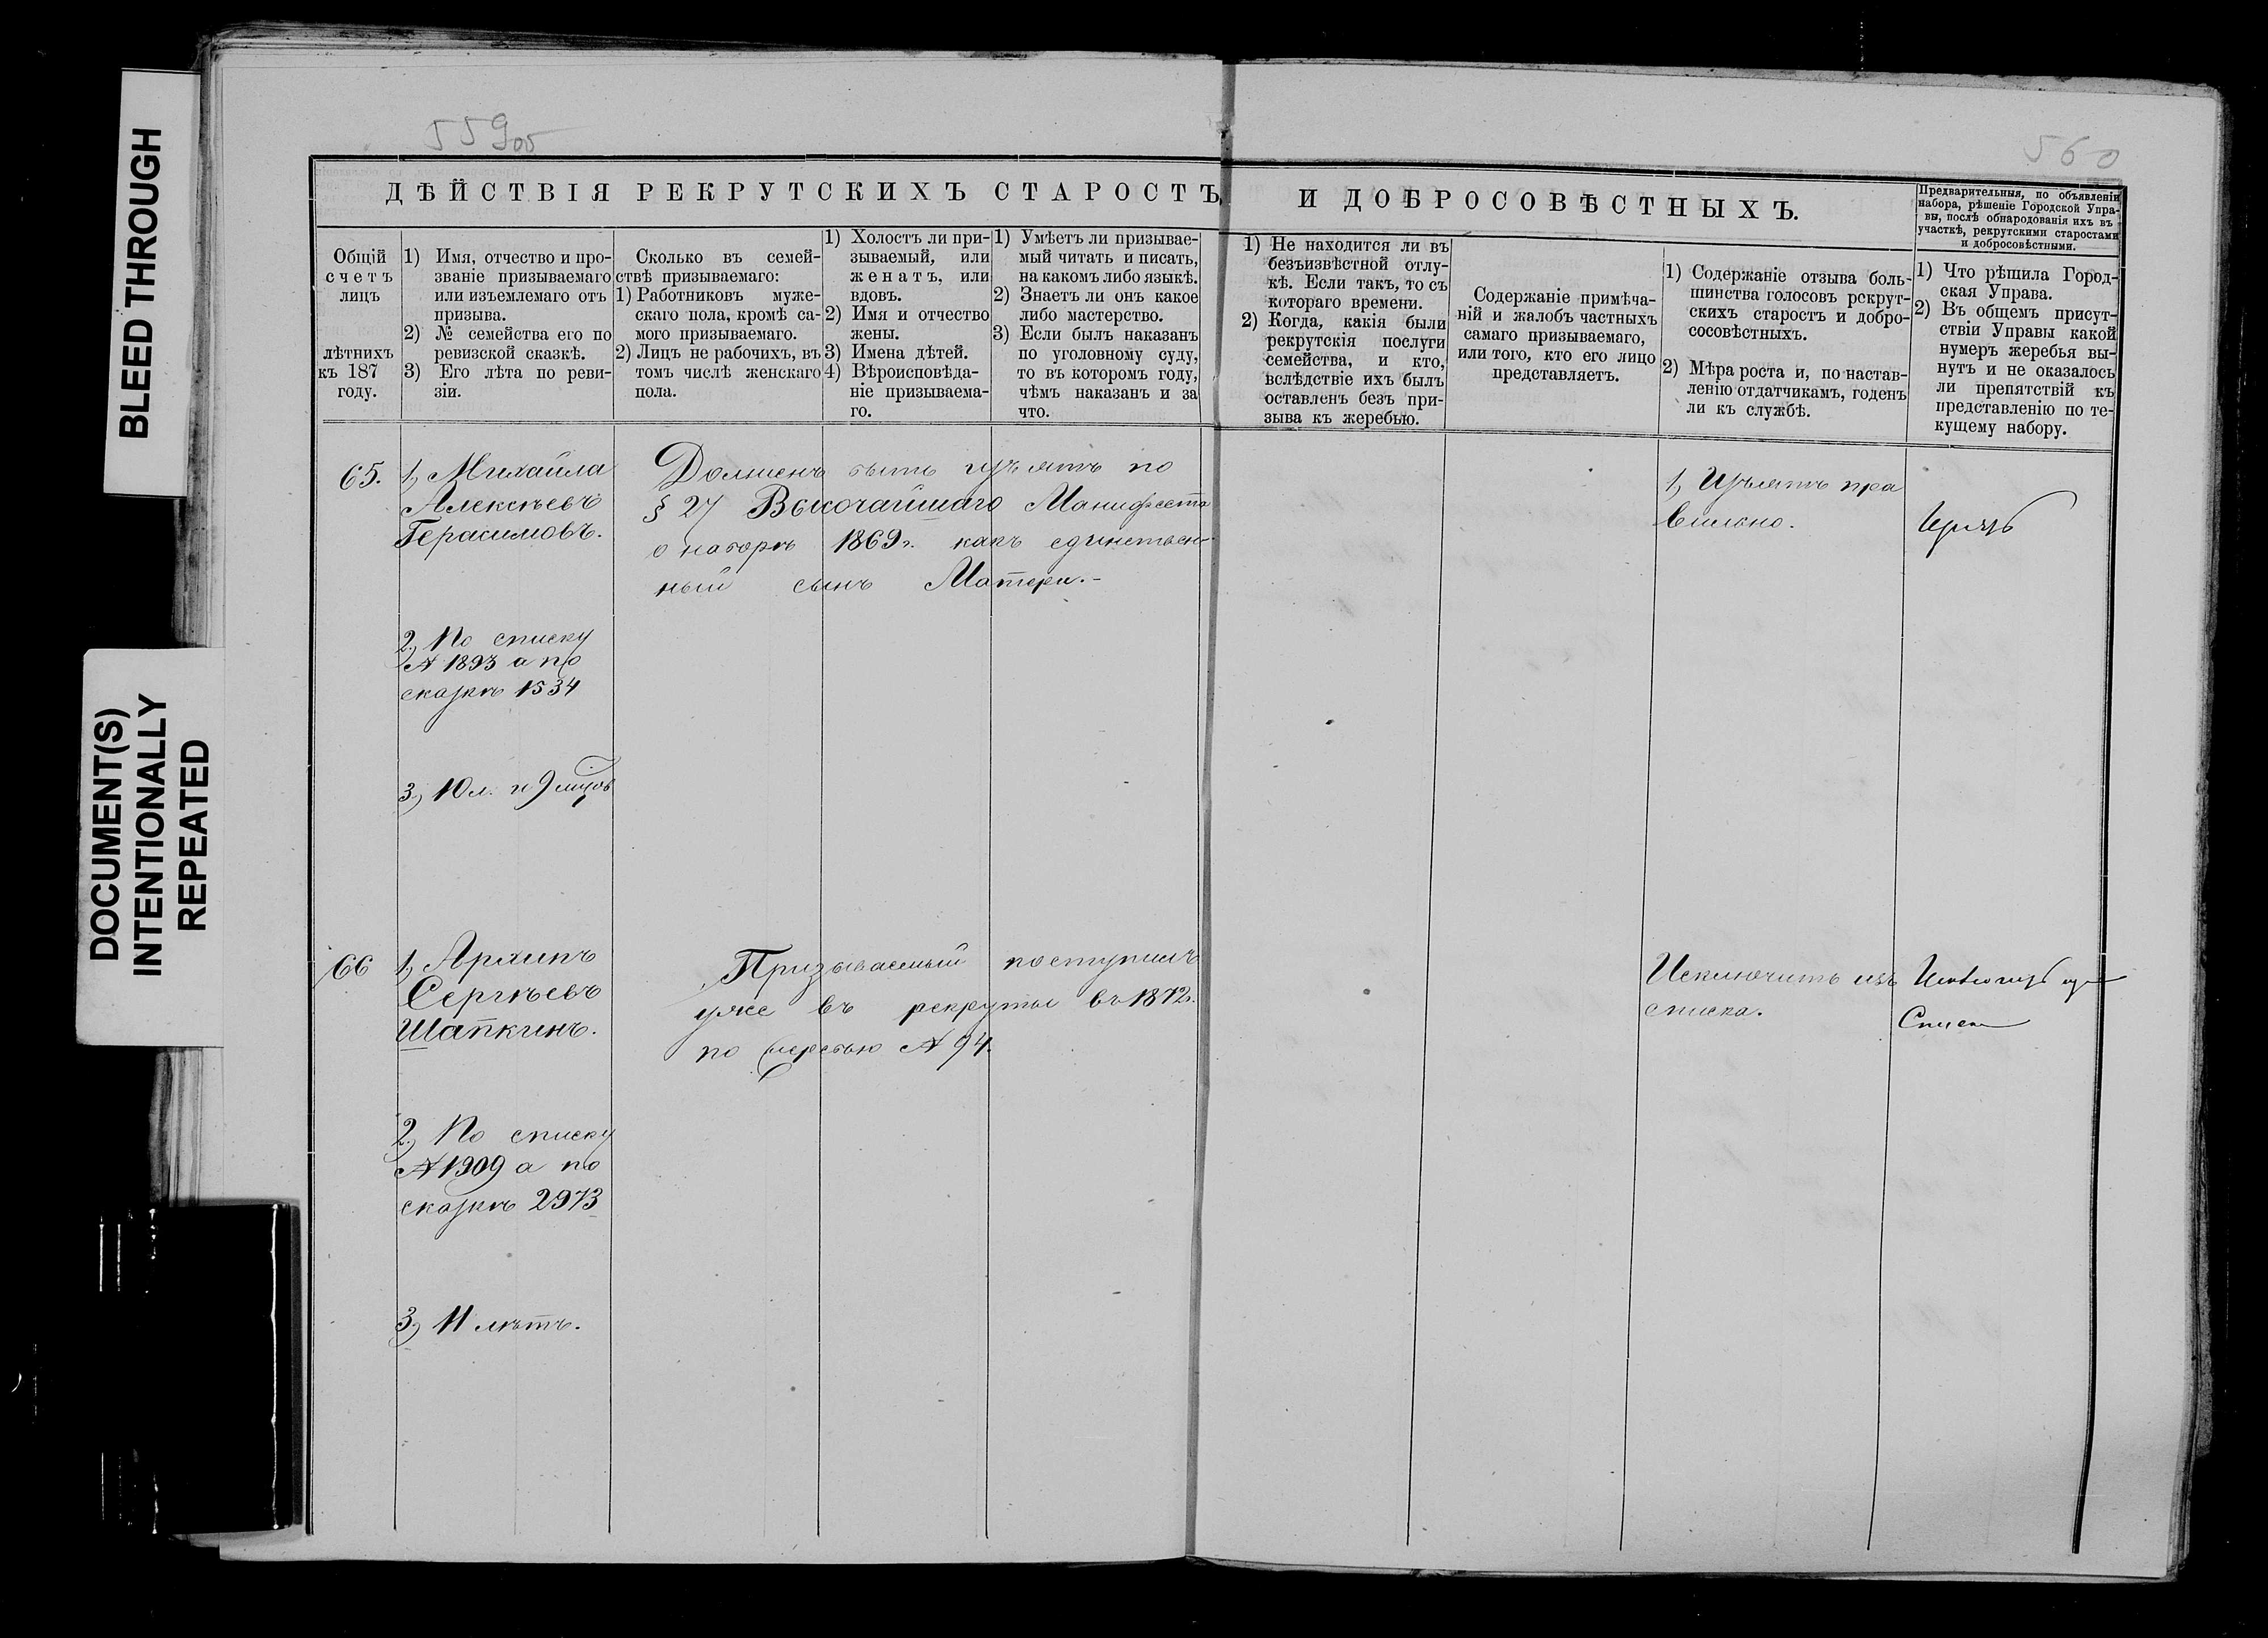 BLEED THROUGH
DOCUMENT(S)
INTENTIONALLY
REPEATED
559об
560
ДѢЙСТВІЯ РЕКРУТСКИХЪ СТАРОСТЪ И ДОБРОСОВѢСТНЫХЪ.
Предварительныя, по объявленіи
набора, рѣшеніе Городской Упра-
вы, послѣ обнародованія ихъ въ
участкѣ, рекрутскими старостами
и добросовѣстными.
Общій
счетъ
лицъ
лѣтнихъ
къ 187
году.
1) Имя, отчество и про-
званіе призываемаго
или изъемлемаго отъ
призыва.
2) № семейства его по
ревизской сказкѣ.
3) Его лѣта по реви-
зіи.
Сколько въ семей-
ствѣ призываемаго:
1) Работниковъ муже-
скаго пола, кромѣ са-
мого призываемаго.
2) Лицъ не рабочихъ, въ
томъ числѣ женскаго
пола.
1) Холостъ ли при-
зываемый, или
женатъ, или
вдовъ.
2) Имя и отчество
жены.
3) Имена дѣтей.
4) Вѣроисповѣда-
ніе призываема-
го.
1) Умѣетъ ли призывае-
мый читать и писать,
на какомъ либо языкѣ.
2) Знаетъ ли онъ какое
либо мастерство.
3) Если былъ наказанъ
по уголовному суду,
то въ которомъ году,
чѣмъ наказанъ и за
что.
1) Не находится ли въ
безъизвѣстной отлу-
кѣ. Если такъ, то съ
котораго времени.
2) Когда, какія были
рекрутскія послуги
семейства, и кто,
вслѣдствіе ихъ былъ
оставленъ безъ при-
зыва къ жеребью.
Содержаніе примѣча-
ній и жалобъ частныхъ
самаго призываемаго,
или того, кто его лицо
представляетъ.
1) Содержаніе отзыва боль-
шинства голосовъ рекрут-
скихъ старостъ и добро-
совѣстныхъ.
2) Мѣра роста и, по настав-
ленію отдатчикамъ, годенъ
ли къ службѣ.
1) Что рѣшила Город-
ская Управа.
2) Въ общемъ присут-
ствіи Управы какой
нумеръ жеребья вы-
нутъ и не оказалось
ли препятствій къ
представленію по те-
кущему набору.
65.
1) Михайла
Алексѣевъ
Герасимовъ.
2) По списку
№ 1893 а по
сказкѣ 1534
3) 10 л. и 9 мцовъ
Долженъ быть изъятъ по
§ 27 Высочайшаго Манифеста
о наборѣ 1869 г. какъ единствен-
ный сынъ Матери.-
1) Изъятъ пра
вильно.
66
1) Архипъ
Сергѣевъ
Шапкинъ.
2) По списку
№ 1909 а по
сказкѣ 2973
3) 11 лѣтъ.
Призываемый поступилъ
уже въ рекруты въ 1872 г.
по жеребью № 94.
Исключить изъ
списка.